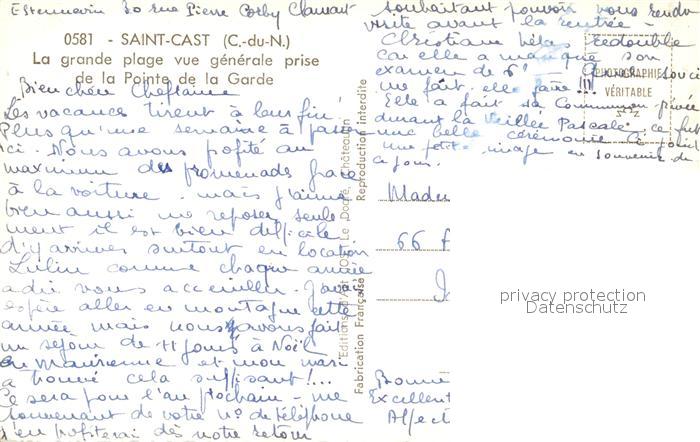 Estennevin 30 rue Pierre Corby Clamart
0581 - SAINT-CAST (C.-du-N.)
La grande plage vue générale prise
de la Pointe de la Garde
Bien chère Cheftaine
Les vacances tirent à leur fin!
Plus qu'une semaine à passer
ici. Nous avons profité au
maximum des promenades grâce
à la voiture, mais j'aime
bien aussi me reposer seule
ment il est bien difficile
d'y arriver surtout en location
Lulin comme chaque année
a dû vous accueillir. J'avais
espéré aller en montagne cette
année mais nous avons fait
un séjour de 11 jours à Noël
en Maurienne et mon mari
a trouvé cela suffisant!...
Ce sera pour l'an prochain - me
souvenant de votre No de téléphone
j'en profiterai dès notre retour
souhaitant pouvoir vous rendre
visite avant la rentrée -
Christiane hélas redouble
car elle a manqué son
examen de 6e souci
me fait elle faire...
Elle a fait sa Communion privée
durant la Veillée Pascale, ce fut
une belle cérémonie. Ci joint
une petite image en souvenir de
ce jour.
PHOTOGRAPHIE
VÉRITABLE
Editions d'Art Le Doaré, Châteaulin
Reproduction Interdite
Fabrication Française
Madem
66
Bonne
Excellent
Affect
privacy protection
Datenschutz